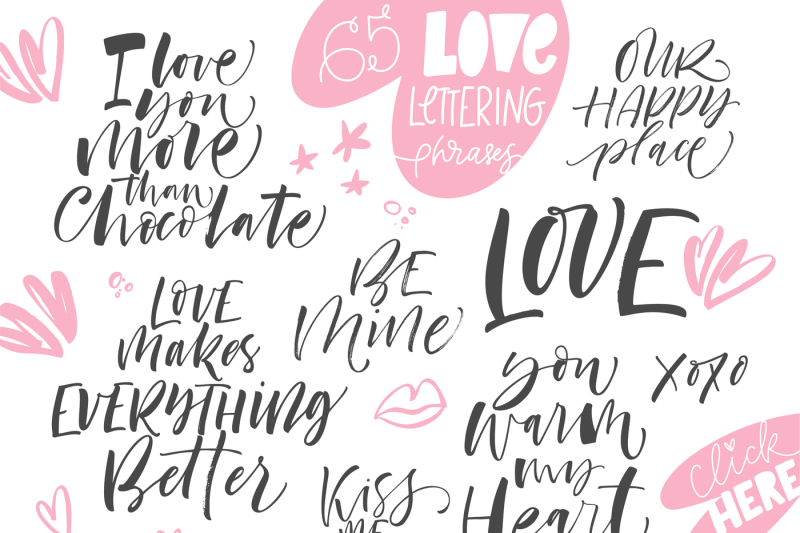 I love
you
more
than
Chocolate
65 LOVE
LETTERING
phrases
OUR
HAPPY
place
LOVE
BE
Mine
LOVE
makes
EVERYTHING
Better
you
warm
my
Heart
xoxo
Kiss
ME
click
HERE